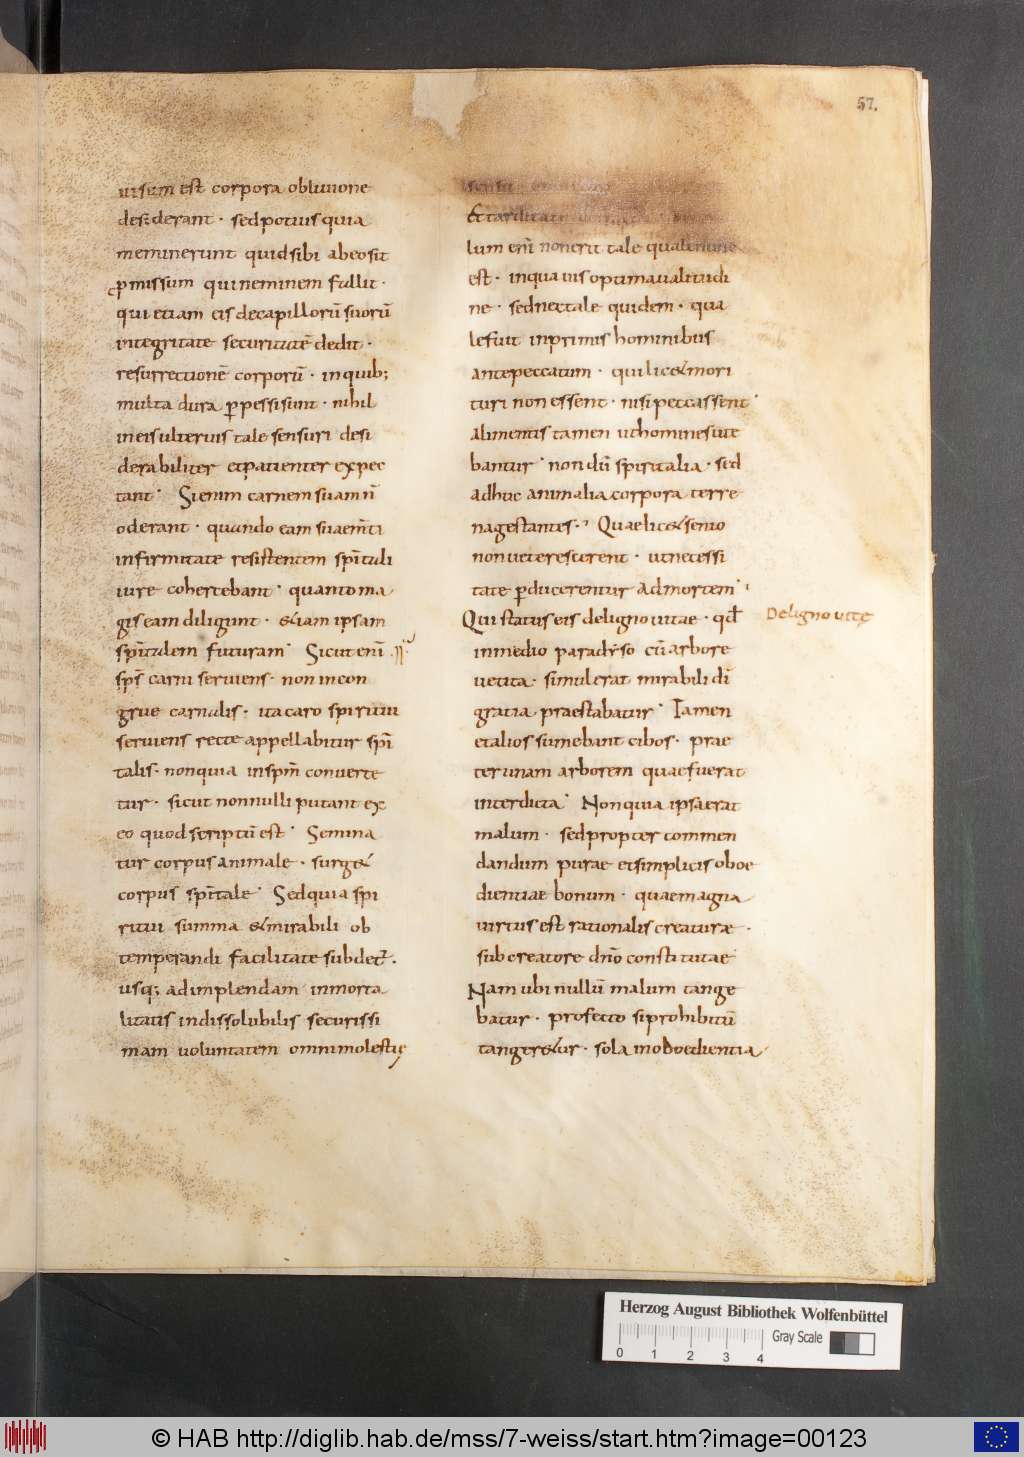 57.
uisum est corpora obliuione
desiderant · sed potius quia
meminerunt quid sibi ab eo sit
ꝓmissum qui neminem fallit ·
qui etiam eis de capillorū suorū
integritate securitatē dedit ·
resurrectionē corporū · in quib;
multa dura ꝑpessi sunt · nihil
in eis ulterius tale sensuri desi
derabiliter et patienter expec
tant · Si enim carnem suam ñ
oderant · quando eam suae m̄ti
infirmitate resistentem sp̄itali
iure cohercebant · quanto ma
gis eam diligunt · &iam ipsam
sp̄italem futuram · Sicut eni
sp̄s carni seruiens · non incon
grue carnalis · ita caro spiritui
seruiens recte appellabitur sp̄i
talis · non quia in sp̄m conuerte
tur · sicut nonnulli putant ex
eo quod scriptū est · Semina
tur corpus animale · surg&
corpus sp̄itale · Sed quia spi
ritui summa & mirabili ob
temperandi facilitate subdet̄.
usq; ad implendam inmorta
litatis indissolubilis securissi
mam uoluntatem omni molestię
sensu
Et tarditate
lum eni non erit tale quale nunc
est · in qua uis optima ualitudi
ne · sed nec tale quidem · qua
le fuit in primis hominibus
ante peccatum · qui lic& mori
turi non essent · nisi peccassent ·
alimentis tamen ut homines ute
bantur · non dū spiritalia · sed
adhuc animalia corpora terre
na gestantes · Quae lic& senio
non ueterescerent · ut necessi
tate ꝑducerentur ad mortem ·
Qui status eis de ligno uitae · qđ
in medio paradyso cū arbore
uetita · simul erat mirabili di
gratia praestabatur · Tamen
et alios sumebant cibos · prae
ter unam arborem quae fuerat
interdicta · Non quia ipsa erat
malum · sed propter commen
dandum purae et simplicis oboe
dientiae bonum · quae magna
uirtus est rationalis creaturæ ·
sub creatore dn̄o constitutae
Nam ubi nullū malum tange
batur · profecto si prohibitū
tanger&ur · sola inoboedientia
De ligno uitę
Herzog August Bibliothek Wolfenbüttel
Gray Scale
0 1 2 3 4
© HAB http://diglib.hab.de/mss/7-weiss/start.htm?image=00123